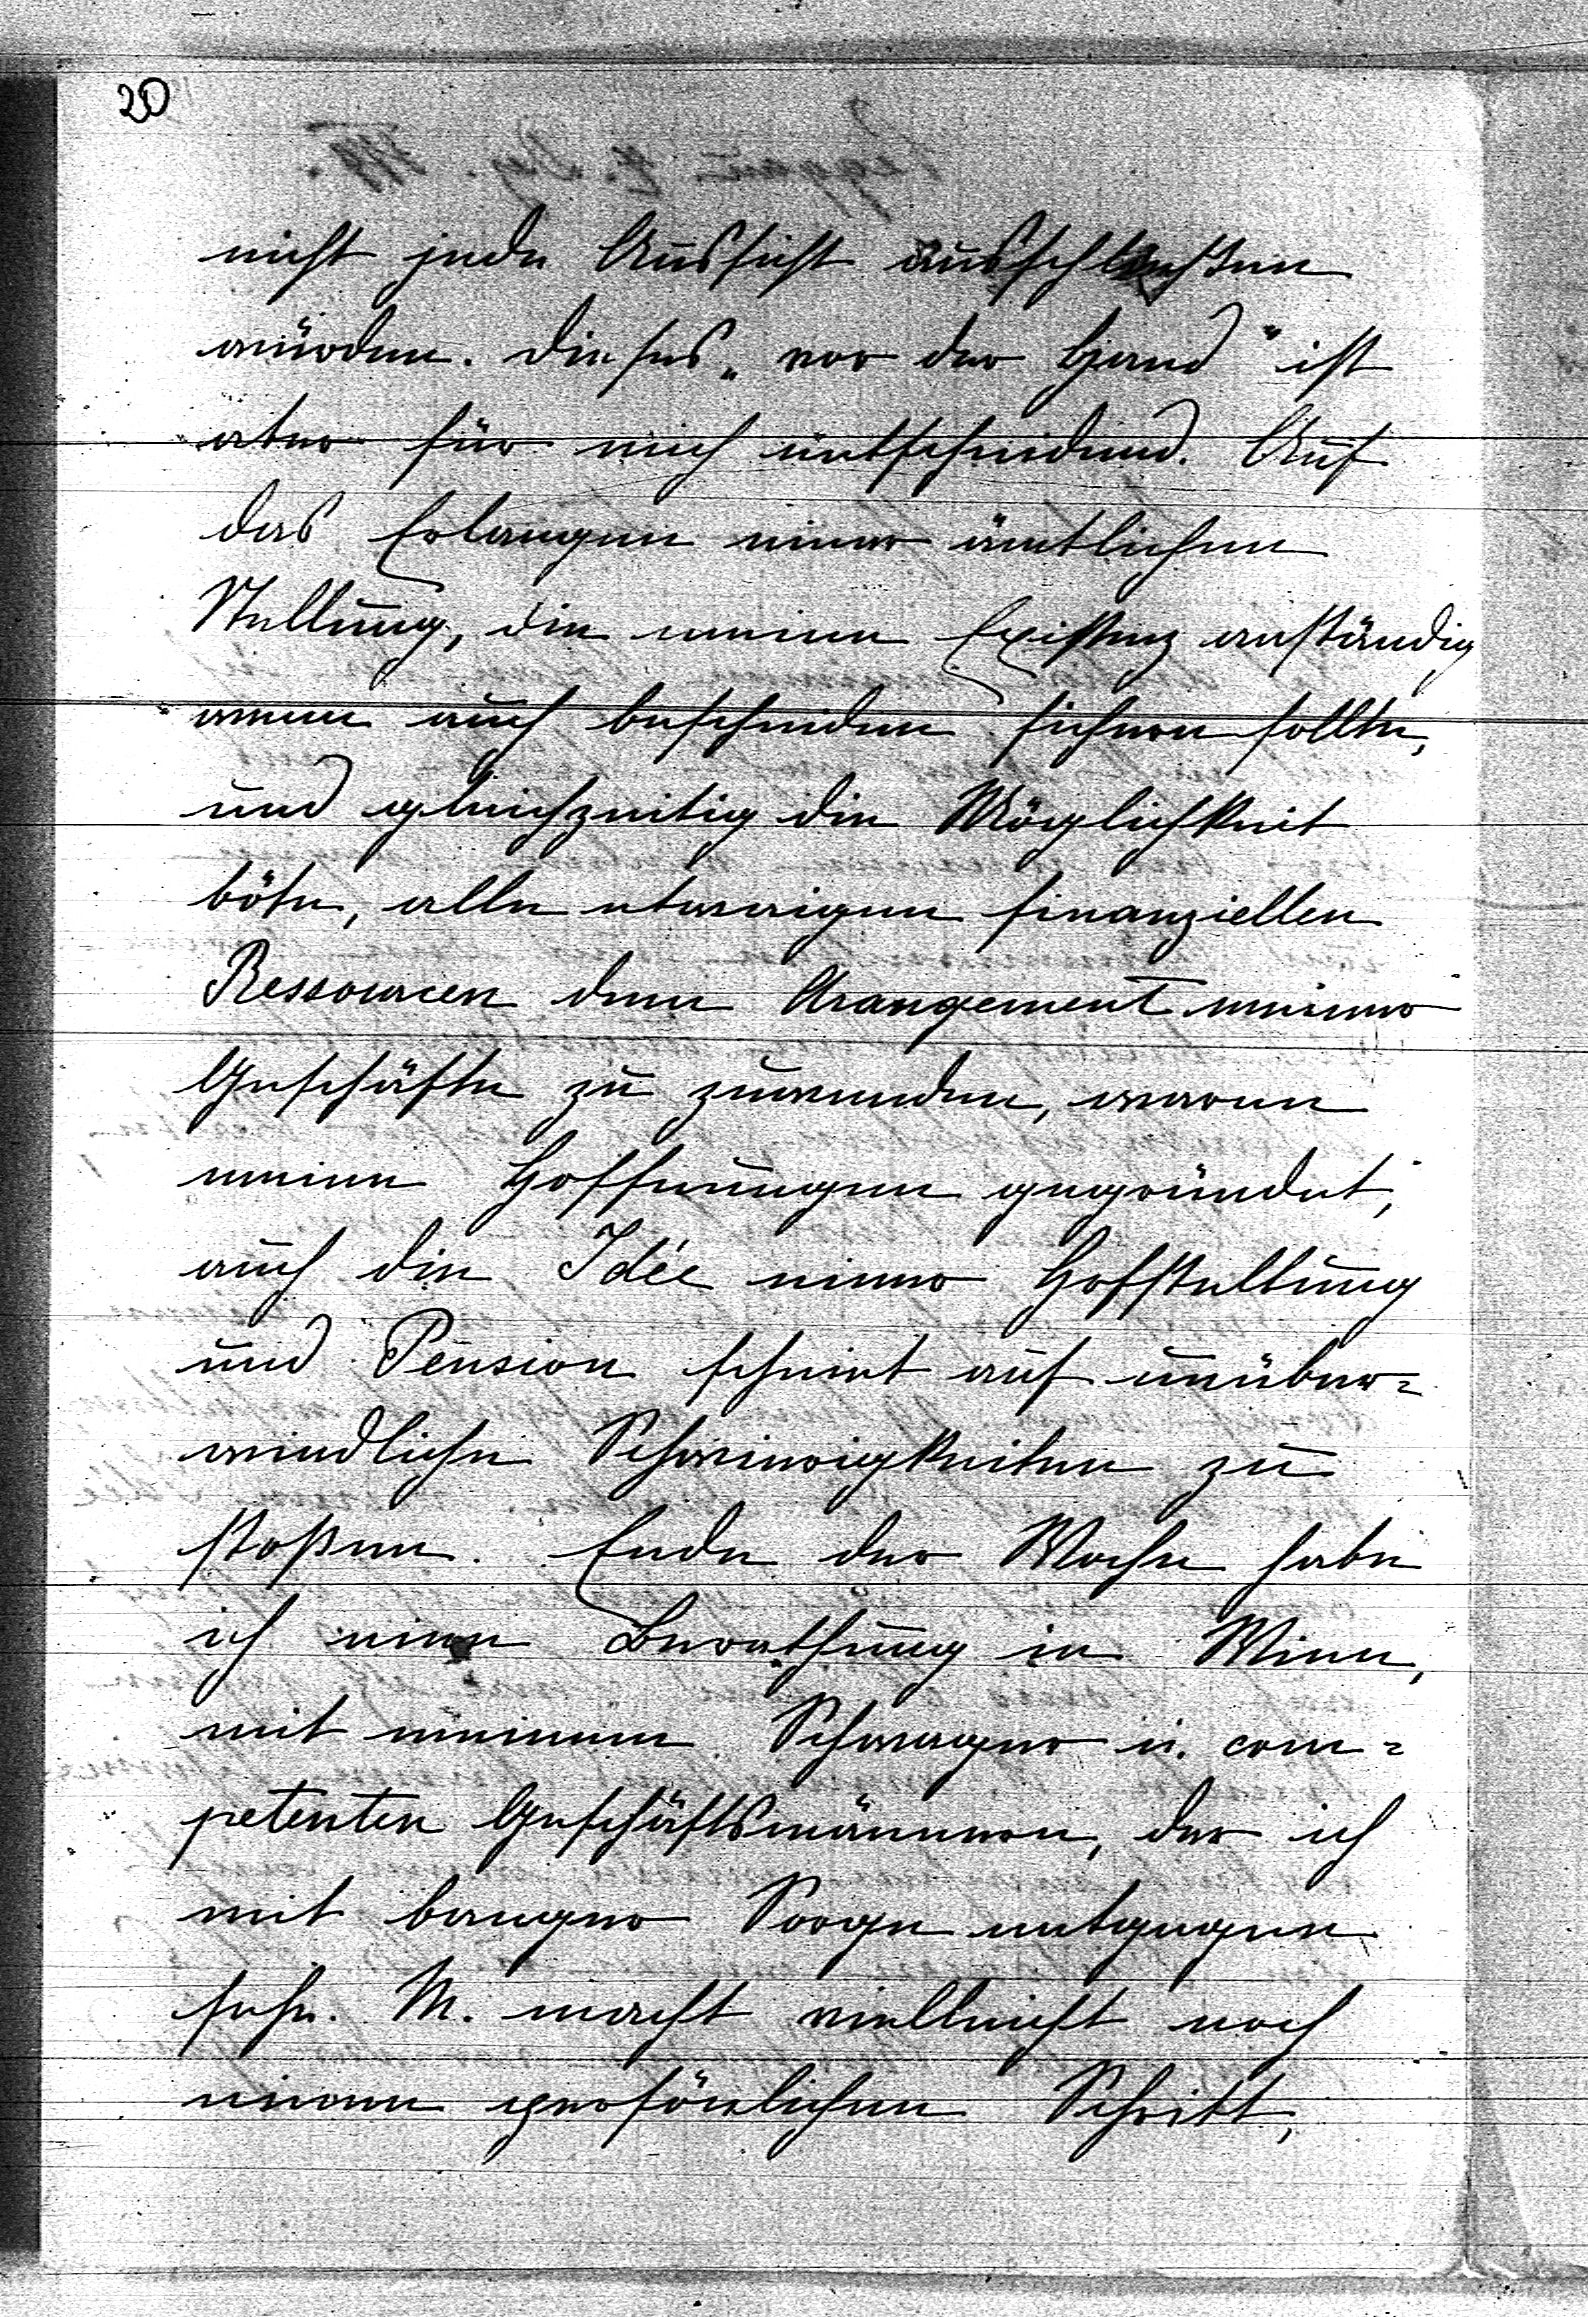 20
nicht jede Aussicht ausschließen
würden. Dieses „vor der Hand" ist
aber für mich entscheidend. Auf
das Erlangen einer ämtlichen
Stellung, die meine Existenz anständig
wenn auch bescheiden sichern sollte,
und gleichzeitig die Möglichkeit
böte, alle etwaigen finanziellen
Ressourcen dem Arangement meiner
Geschäfte zu zuwenden, waren
meine Hoffnungen gegründet;
auch die Idée einer Hofstellung
und Pension scheint auf unüber=
windliche Schwierigkeiten zu
stoßen. Ende der Woche habe
ich eine Berathung in Wien,
mit meinem Schwager u. com=
petenten Geschäftsmännern, der ich
mit banger Sorge entgegen
sehe. M. macht vielleicht noch
einen persönlichen Schritt,